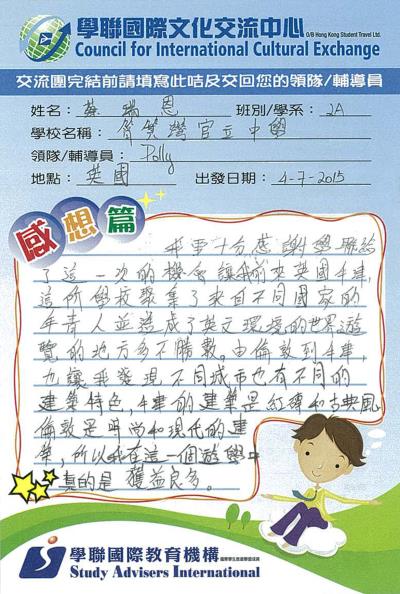 學聯國際文化交流中心 O/B Hong Kong Student Travel Ltd.
Council for International Cultural Exchange
交流團完結前請填寫此咭及交回您的領隊/輔導員
姓名： 蔡瑞恩 班別/學系： 2A
學校名稱： 筲箕灣官立中學
領隊/輔導員： Polly
地點： 英國 出發日期： 4-7-2015
感想篇
我要十分感謝學聯給
了這一次的機會讓我前來英國牛津,
這所學校聚集了來自不同國家的
年青人並造成了英文環境的世界遊
覽的地方多不勝數。由倫敦到牛津,
也讓我發現不同城市也有不同的
建築特色,牛津的建築是紅磚和古典風
倫敦是時尚和現代的建
築,所以我在這一個遊學中
真的是獲益良多。
學聯國際教育機構
Study Advisers International